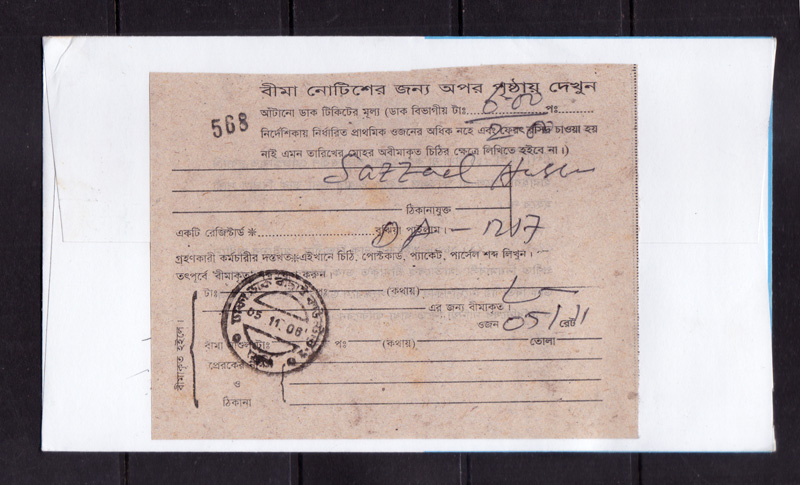 বীমা নোটিশের জন্য অপর পৃষ্ঠায় দেখুন
568
আঁটানো ডাক টিকিটের মূল্য (ডাক বিভাগীয় টাঃ 6-00 পঃ
নির্দেশিকায় নির্ধারিত প্রাথমিক ওজনের অধিক নহে এবং ফেরৎ রসিদ চাওয়া হয়
নাই এমন তারিখের মোহর অবীমাকৃত চিঠির ক্ষেত্রে লিখিতে হইবে না।)
Sazzad
ঠিকানাযুক্ত
একটি রেজিস্টার্ড ※ বুঝিয়া পাইলাম।
গ্রহণকারী কর্মচারীর দস্তখত ※এইখানে চিঠি, পোস্টকার্ড, প্যাকেট, পার্সেল শব্দ লিখুন।
তৎপূর্বে 'বীমাকৃত' করুন।
টাঃ পঃ (কথায়)
এর জন্য বীমাকৃত।
ওজন 05/11 রেট
05 11 06
বীমা টাঃ পঃ (কথায়) তোলা
বীমাকৃত হইলে।
প্রেরকের
ও
ঠিকানা